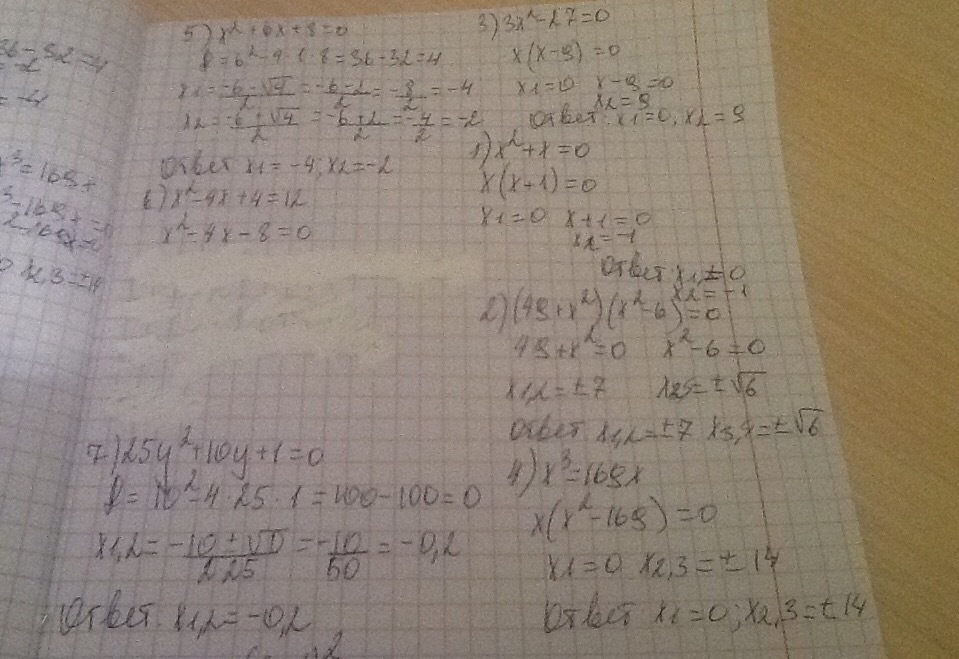 36-32=4
=-2
=-4
x³=169x
³-169x=0
0 x2,3=±14
5) x²+6x+8=0
D=6²-4·1·8=36-32=4
x1=-6-√4/2=-6-2/2=-8/2=-4
x2=-6+√4/2=-6+2/2=-4/2=-2
Ответ x1=-4; x2=-2
6) x²-4x+4=12
x²-4x-8=0
7) 25y²+10y+1=0
D=10²-4·25·1=100-100=0
x1,2=-10±√0/2·25=-10/50=-0,2
Ответ x1,2=-0,2
3) 3x²-27=0
x(x-9)=0
x1=0 x-9=0
x2=9
Ответ: x1=0; x2=9
1) x²+x=0
x(x+1)=0
x1=0 x+1=0
x2=-1
Ответ x1=0
x2=-1
2) (49+x²)(x²-6)=0
49+x²=0 x²-6=0
x1,2=±7 =±√6
Ответ x1,2=±7 x3,4=±√6
4) x³=169x
x(x²-169)=0
x1=0 x2,3=±14
Ответ x1=0; x2,3=±14